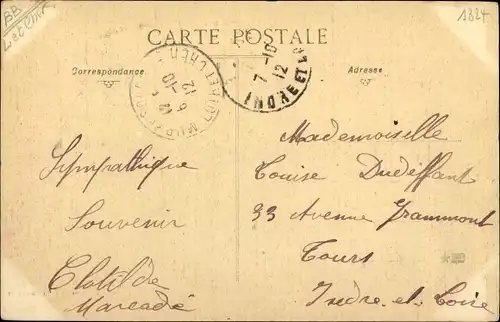 BB
1324
CARTE POSTALE
Correspondance
Adresse
7-10
12
6-10
12
Sympathique
Souvenir
Clotilde
Marcadé
Mademoiselle
Louise Dudeffant
33 Avenue Grammont
Tours
Indre-et-Loire